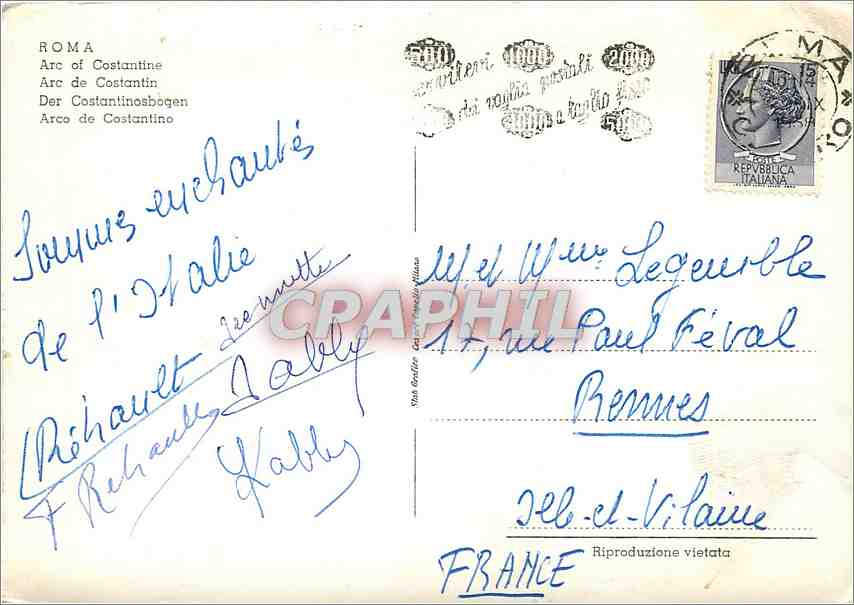 ROMA
Arc of Costantine
Arc de Costantin
Der Costantinosbogen
Arco de Costantino
Sommes enchantés
de l'Italie
Réhault Jeannette
F Rehault Kably
Kably
500 1000 2000
servitevi
dei vaglia postali
a taglio fisso
5000
ROMA
LIRE 15
POSTE
REPVBBLICA
ITALIANA
M. et Mme Legenisble
17, rue Paul Féval
Rennes
Ille-et-Vilaine
FRANCE
Riproduzione vietata
Stab Grafico Cesare Capello Milano
CPARPHIL